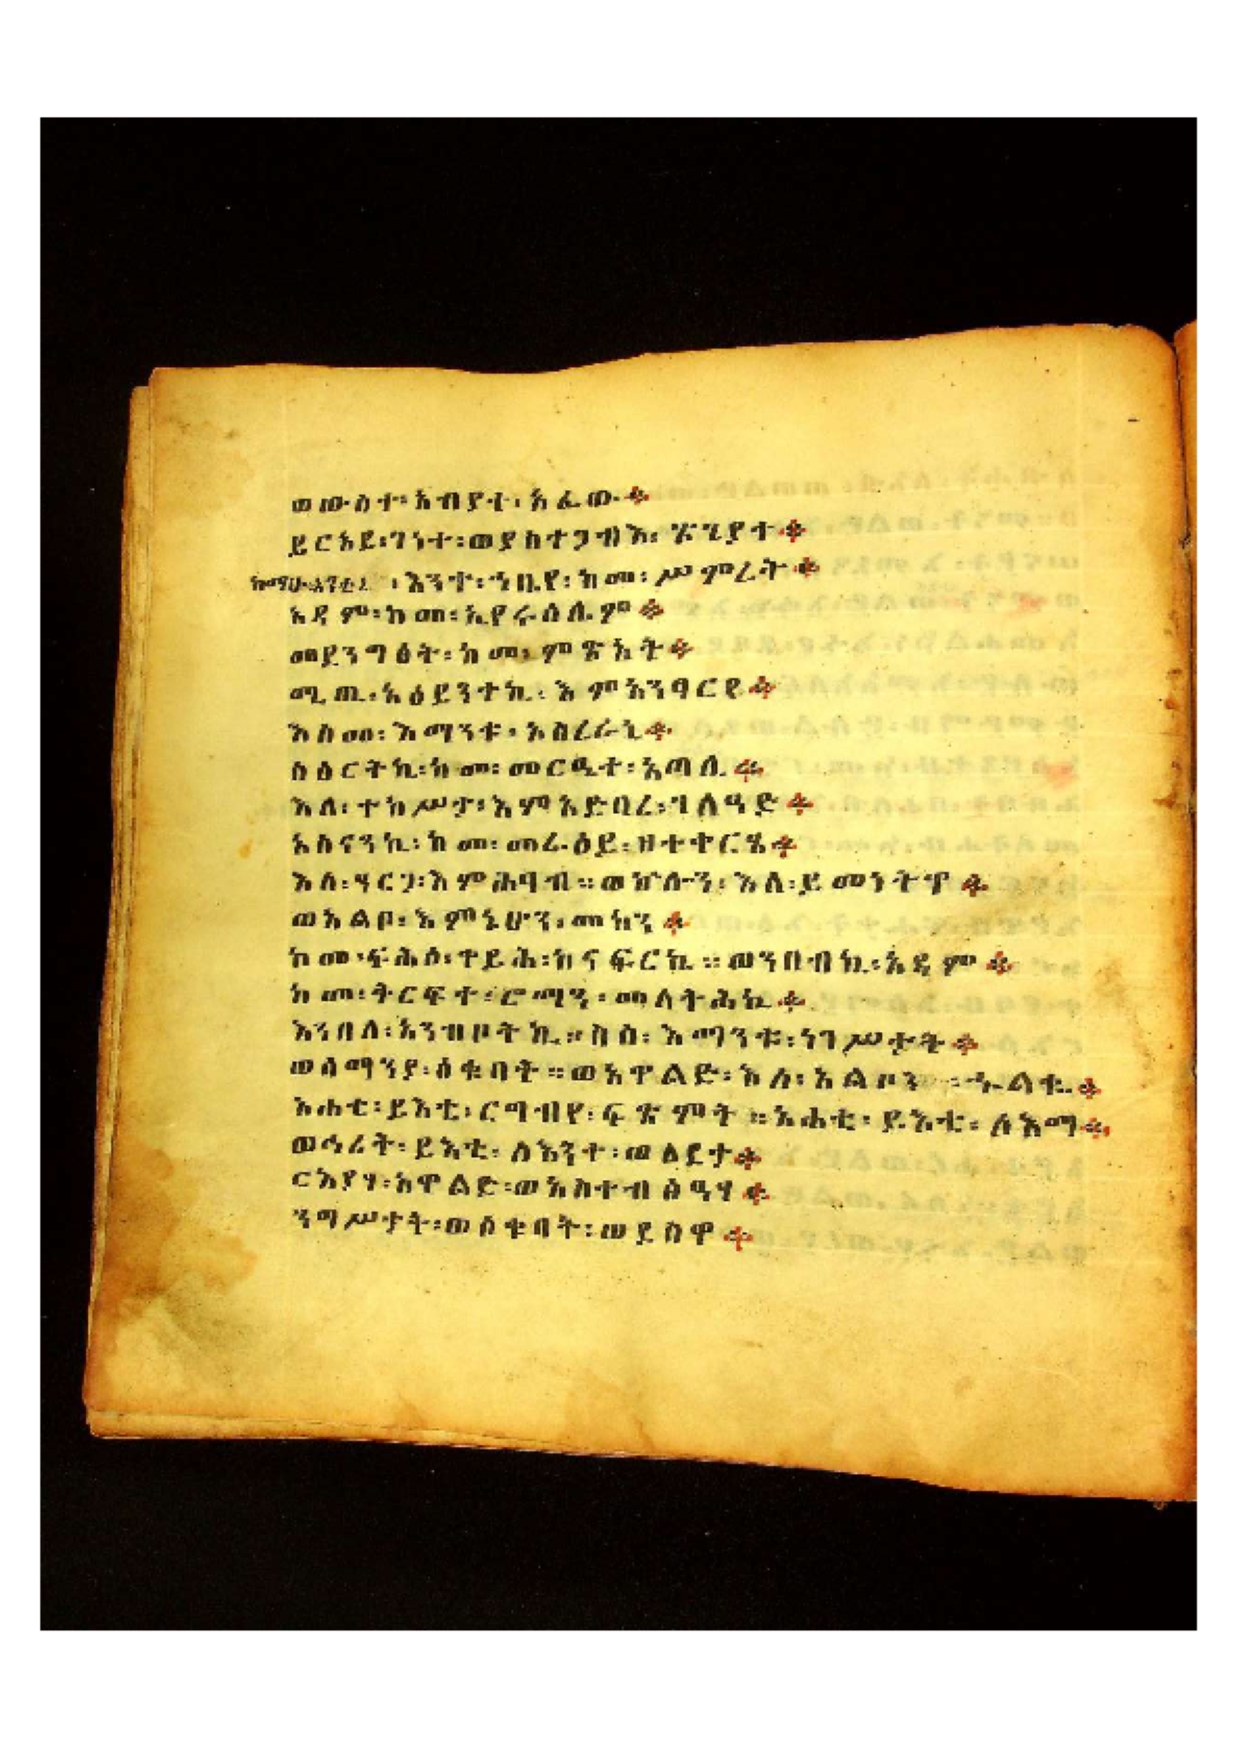 ወውስተ፡ አብያተ፡ አፈው።
ይርአይ፡ ገነተ፡ ወያስተጋብእ፡ ጽጌያተ።
እንተ፡ ኀቤየ፡ ከመ፡ ሥምረት።
አዳም፡ ከመ፡ ኢየሩሰሌም።
መደንግፅት፡ ከመ፡ ምጽአት።
ሚጢ፡ አዕይንተኪ፡ እምአንጻርየ።
እስመ፡ እማንቱ፡ አስረራኒ።
ስዕርትኪ፡ ከመ፡ መርዔተ፡ አጣሊ።
እለ፡ ተከሥታ፡ እምአድበረ፡ ገለዓድ።
አስናንኪ፡ ከመ፡ መራዕይ፡ ዘተቀርፃ።
እለ፡ ዓርጋ፡ እምሕፃብ። ወኵሉን፡ እለ፡ ይመነትዋ።
ወአልቦ፡ እምኔሆን፡ መካን።
ከመ፡ ፍሕሶ፡ ቀይሕ፡ ከናፍርኪ። ወንበብኪ፡ አዳም።
ከመ፡ ቅርፍተ፡ ሮማን፡ መላትሕኪ።
እንበለ፡ አንዝቦትኪ። ስሳ፡ እማንቱ፡ ነገሥታት።
ወሰማንያ፡ ዕቁባት። ወአዋልድ፡ እለ፡ አልቦን፡ ኁልቁ።
አሐቲ፡ ይእቲ፡ ርግብየ፡ ፍጽምት። አሐቲ፡ ይእቲ፡ ለእማ።
ወኅሪት፡ ይእቲ፡ ለእንተ፡ ወለደታ።
ርእያሃ፡ አዋልድ፡ ወአስተብፅዓሃ።
ንግሥታት፡ ወዕቁባት፡ ወይሴብሓ።